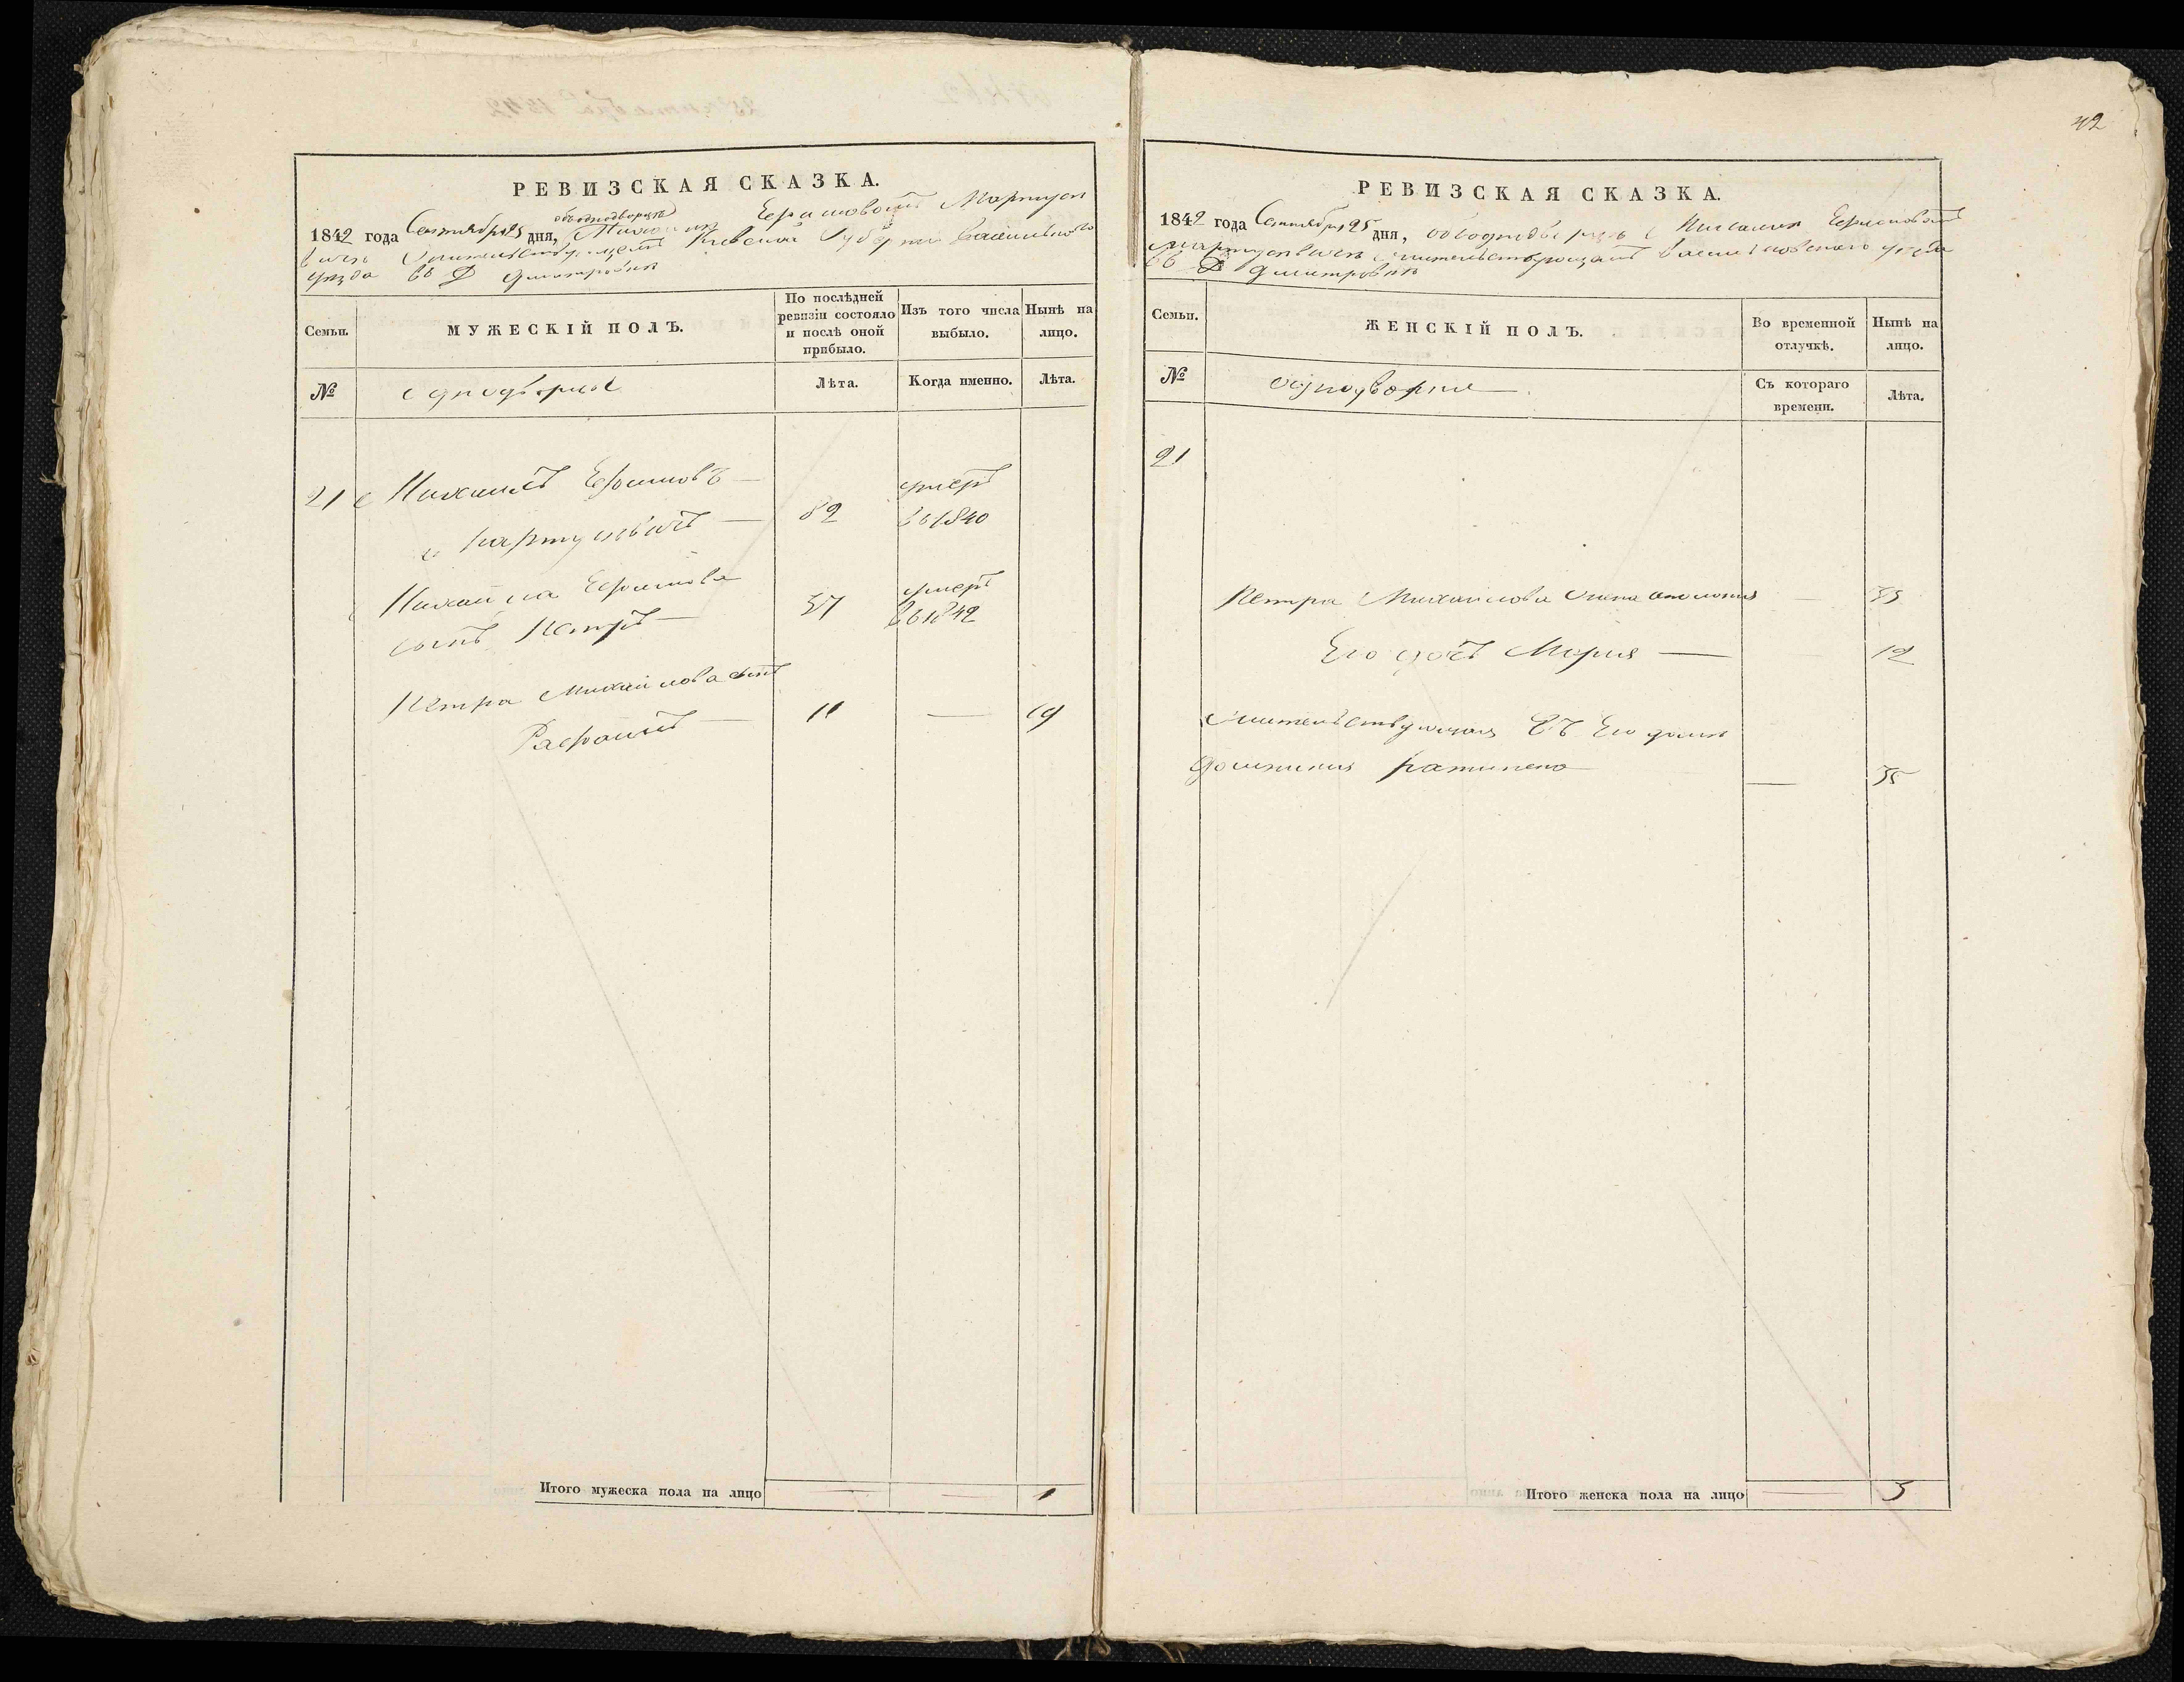 42
РЕВИЗСКАЯ СКАЗКА.
1842 года Сентября 25 дня, объ однодворцѣ Михаилѣ Ефимовомъ Мартусе
вичѣ жительствующемъ Кіевской Губерніи Васильковского
уѣзда въ Д Дмитровкѣ
Семьи.
МУЖЕСКІЙ ПОЛЪ.
По послѣдней ревизіи состояло и послѣ оной прибыло.
Изъ того числа выбыло.
Нынѣ на лицо.
№
однодворцы
Лѣта.
Когда именно.
Лѣта.
21 Михаилъ Ефимовъ —
Мартусевичъ — 82 умеръ въ 1840
Михайла Ефимова
сынъ Петръ — 37 умеръ въ 1842
Петра Михайлова сынъ
Рафаилъ — 11 — 19
Итого мужеска пола на лицо — — 1
РЕВИЗСКАЯ СКАЗКА.
1842 года Сентября 25 дня, объ однодворцѣ Михаилѣ Ефимовомъ
Мартусевичѣ жительствующемъ Васильковского уѣзда
въ Д Дмитровкѣ
Семьи.
ЖЕНСКІЙ ПОЛЪ.
Во временной отлучкѣ.
Нынѣ на лицо.
№
однодворцы
Съ котораго времени.
Лѣта.
21
Петра Михайлова жена — 35
Его дочь Марія — 12
жительствующая въ Его домѣ
— 35
Итого женска пола на лицо — 3